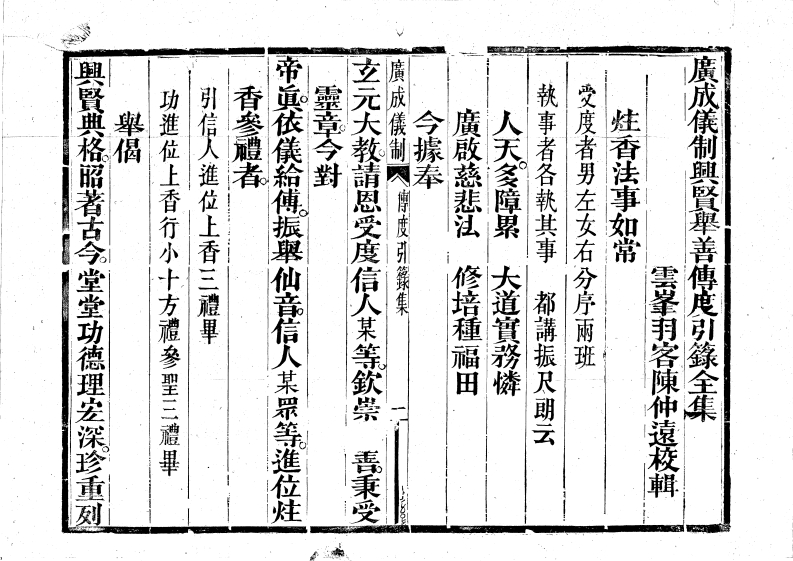 廣成儀制興賢舉善傳度引籙全集
雲峯羽客陳仲遠校輯
炷香法事如常
受度者男左女右分序兩班
執事者各執其事　都講振尺朗云
人天多障累　大道實務憐
廣啟慈悲法　修培種福田
今據奉
玄元大教請恩受度信人某等欽崇　善秉受
廣成儀制　傳度引籙集　二
靈章今對
帝眞依儀給傳振舉仙音信人某眾等進位炷
香參禮者
引信人進位上香三禮畢
功進位上香行小十方禮參聖三禮畢
舉偈
興賢典格昭著古今堂堂功德理宏深珍重列